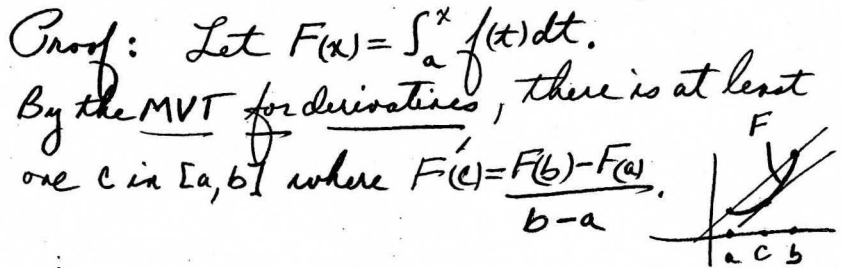 Proof: Let F(x) = ∫ₐˣ f(t)dt.
By the MVT for derivatives, there is at least
one c in [a,b] where F'(c) = F(b)-F(a)
b-a .
F
a c b